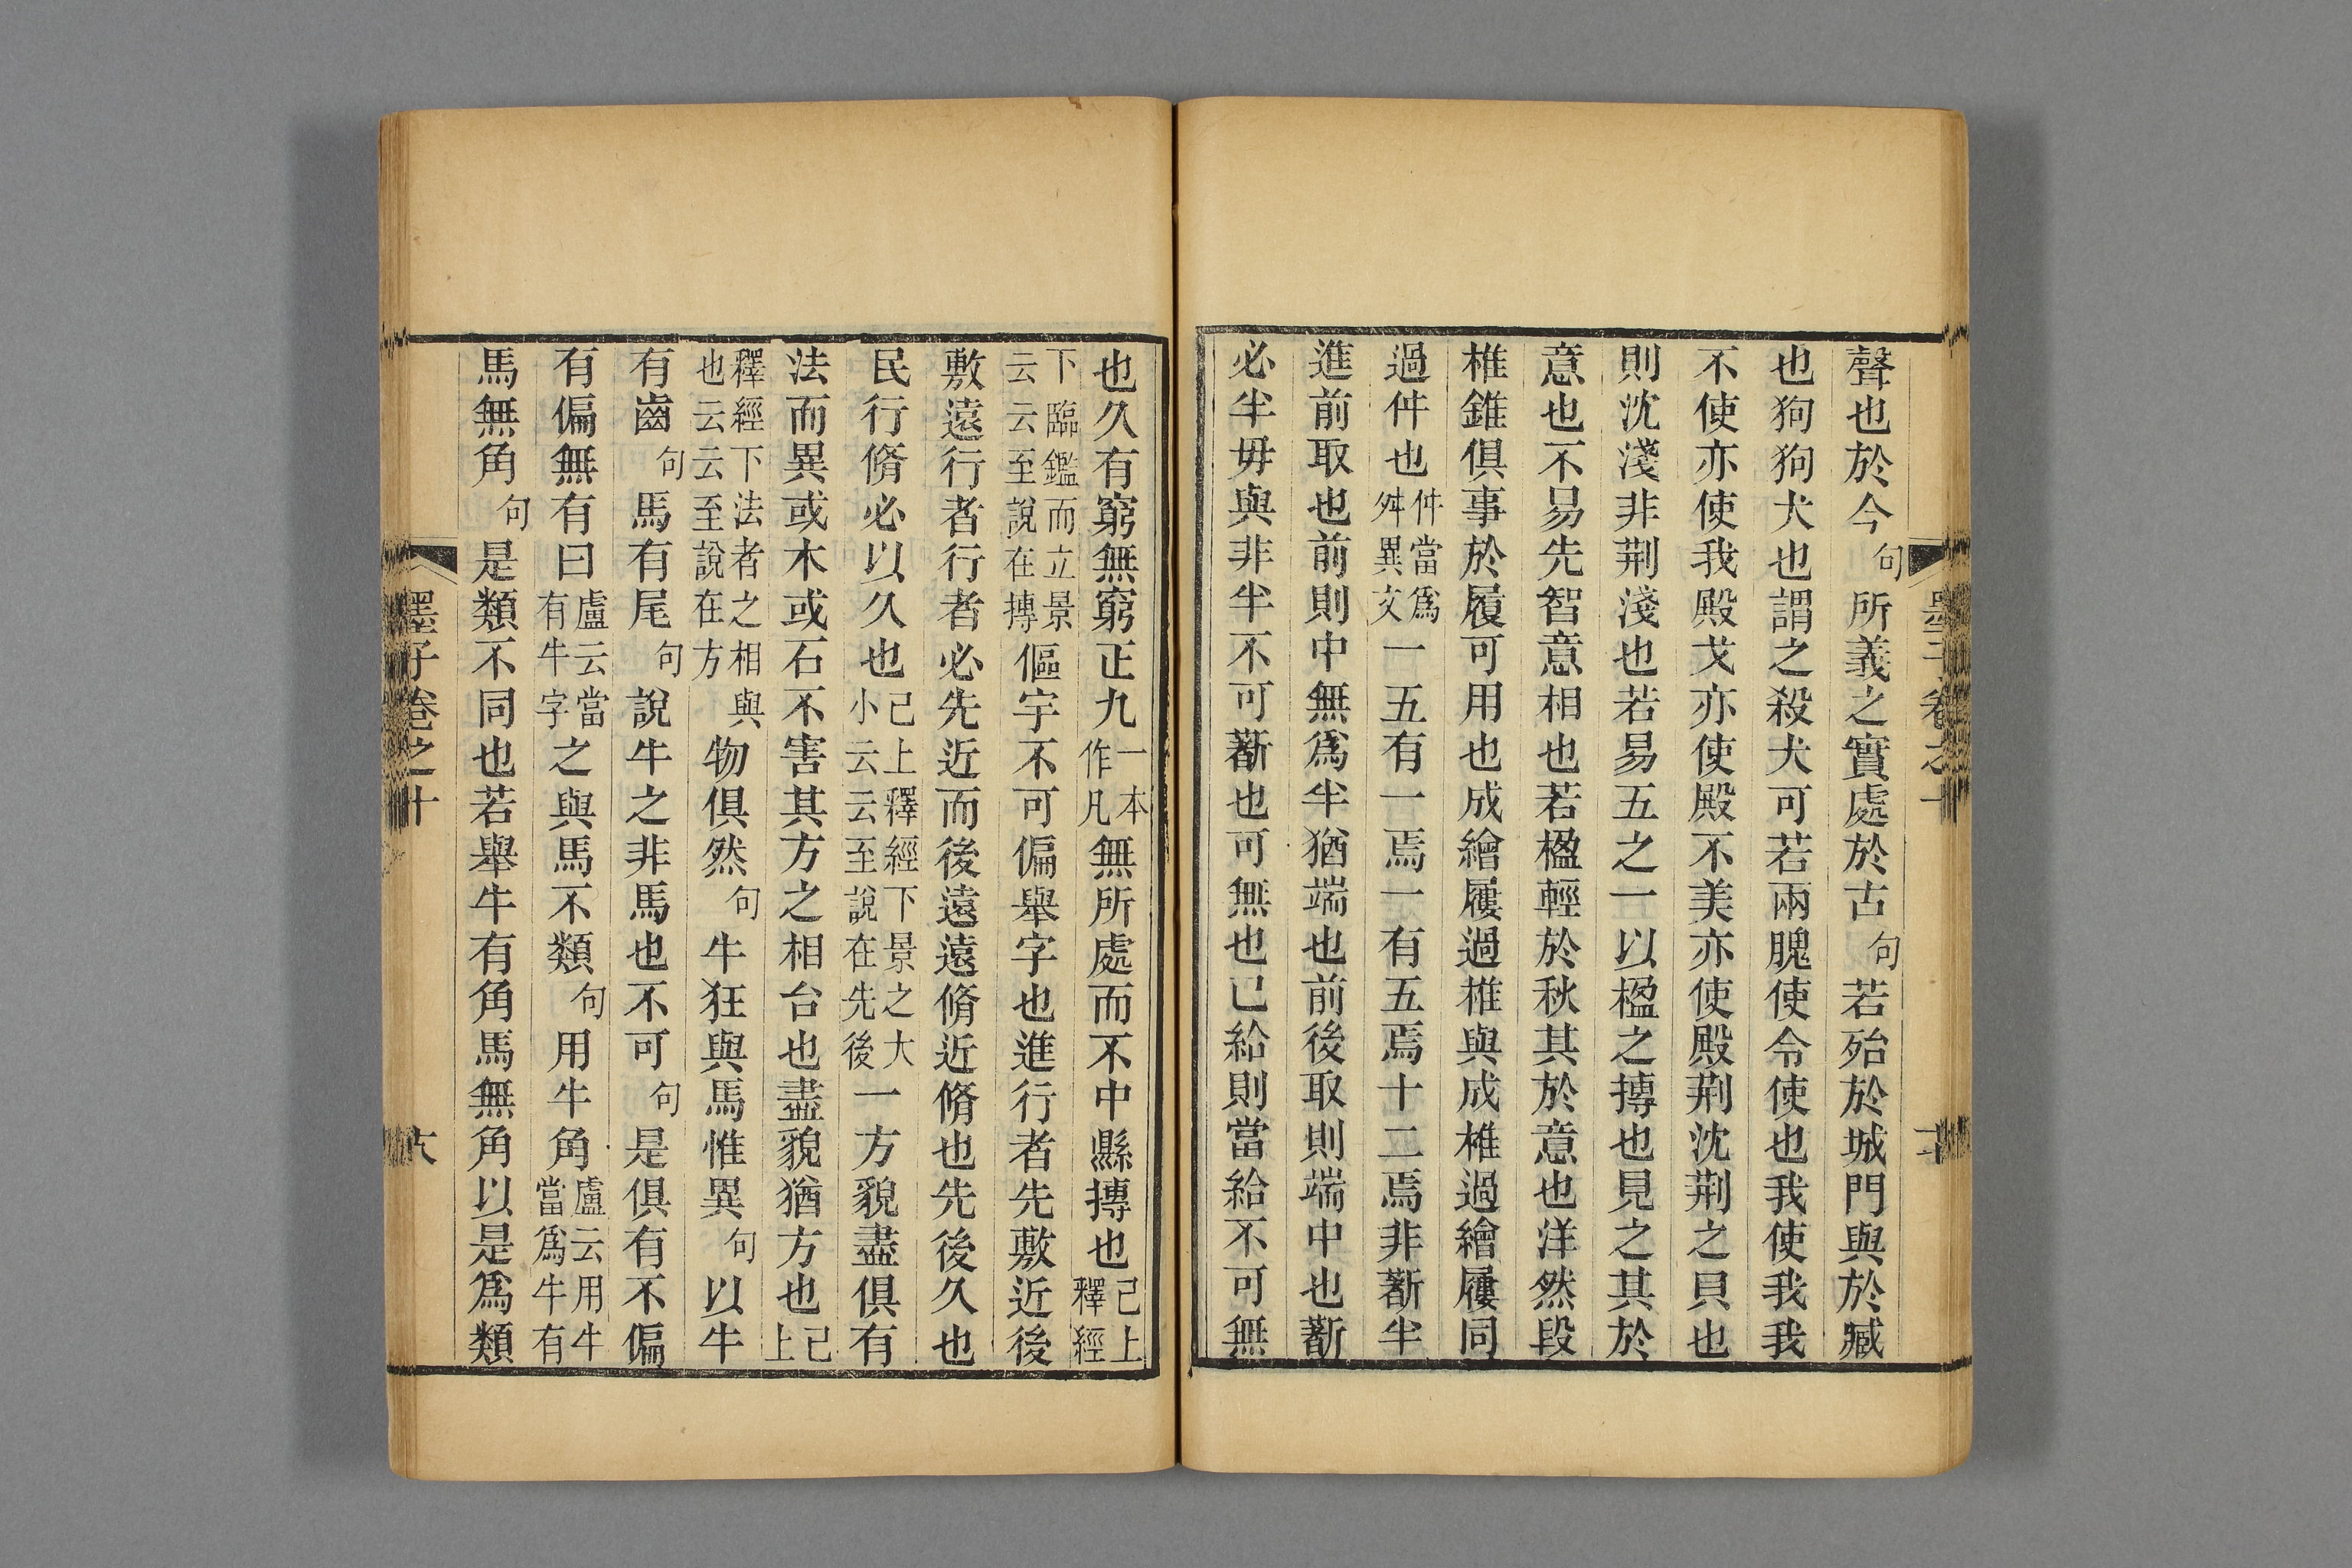 聲也於今句所義之實處於古句若殆於城門與於臧
也狗狗犬也謂之殺犬可若兩䏢使令使也我使我我
不使亦使我殿戈亦使殿不美亦使殿荆沈荆之貝也
則沈淺非荆淺也若易五之一以楹之摶也見之其於
意也不易先智意相也若楹輕於秋其於意也洋然段
椎錐俱事於履可用也成繪屨過椎與成椎過繪屨同
過仵也仵當為舛異文一五有一焉一有五焉十二焉非斱半
進前取也前則中無為半猶端也前後取則端中也斱
必半毋與非半不可斱也可無也已給則當給不可無
也久有窮無窮正九一本作凡無所處而不中縣摶也已上釋經
下臨鑑而立景云云至說在摶傴宇不可偏舉字也進行者先敷近後
敷遠行者行者必先近而後遠遠脩近脩也先後久也
民行脩必以久也已上釋經下景之大小云云至說在先後一方貌盡俱有
法而異或木或石不害其方之相台也盡貌猶方也已上
釋經下法者之相與也云云至說在方物俱然句牛狂與馬惟異句以牛
有齒句馬有尾句說牛之非馬也不可句是俱有不偏
有偏無有曰盧云當有牛字之與馬不類句用牛角盧云用牛當為牛有
馬無角句是類不同也若舉牛有角馬無角以是為類
墨子卷之十